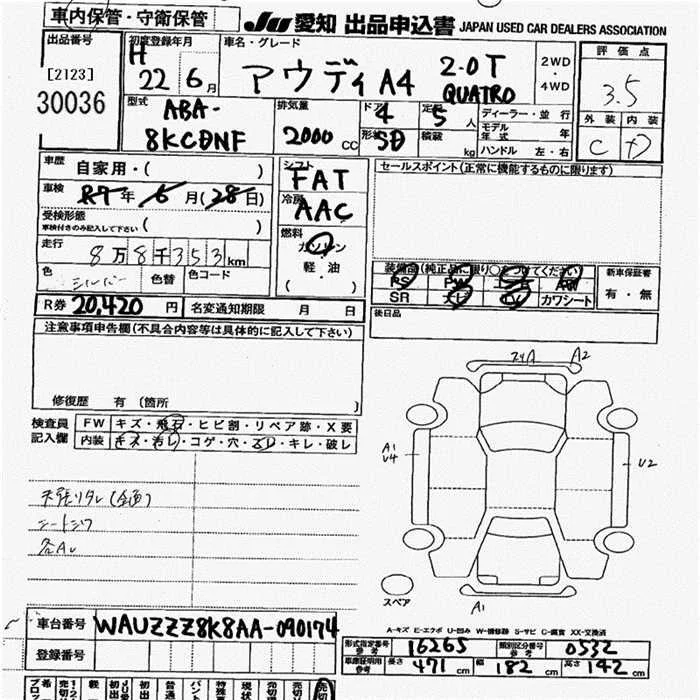 車内保管・守衛保管
JU 愛知 出品申込書 JAPAN USED CAR DEALERS ASSOCIATION
出品番号
[2123]
30036
初度登録年月
H 22 6月
車名・グレード
アウディ A4 2.0T QUATRO
2WD
・
4WD
評価点
3.5
型式
ABA-
8KCDNF
排気量
2000 CC
ドア
4
定員
5人
形状
SD
積載
kg
ディーラー・並行
モデル年式 年
ハンドル 左・右
外装 内装
C D
車歴
自家用・( )
車検 R7年 6月(28日)
受検形態
車検付きのみ記入して下さい ( )
走行 8万8千353km
色 シルバー 色替 色コード
シフト
FAT
冷房
AAC
燃料
ガソリン
軽・油
( )
セールスポイント(正常に機能するものに限ります)
装備品(純正品に限り○をつけてください)
PS PW
SR ナビ TV カワシート
新車保証書
有・無
R券 20,420円 名変通知期限 月 日
後日品
注意事項申告欄(不具合内容等は具体的に記入して下さい)
修復歴 有(箇所 )
検査員
記入欄
FW キズ・飛石・ヒビ割・リペア跡・X要
内装 キズ・汚レ・コゲ・穴・スレ・キレ・破レ
シートシワ
A2
A1
U4
U2
スペア
A1
A-キズ E-エクボ U-凹み W-補修跡 S-サビ C-腐食 XX-交換済
車台番号 WAUZZZ8K8AA-090174
登録番号
形式指定番号 参考 16265 類別区分番号 参考 0532
車庫証明用 参考 長さ 471cm 幅 182cm 高さ 142cm